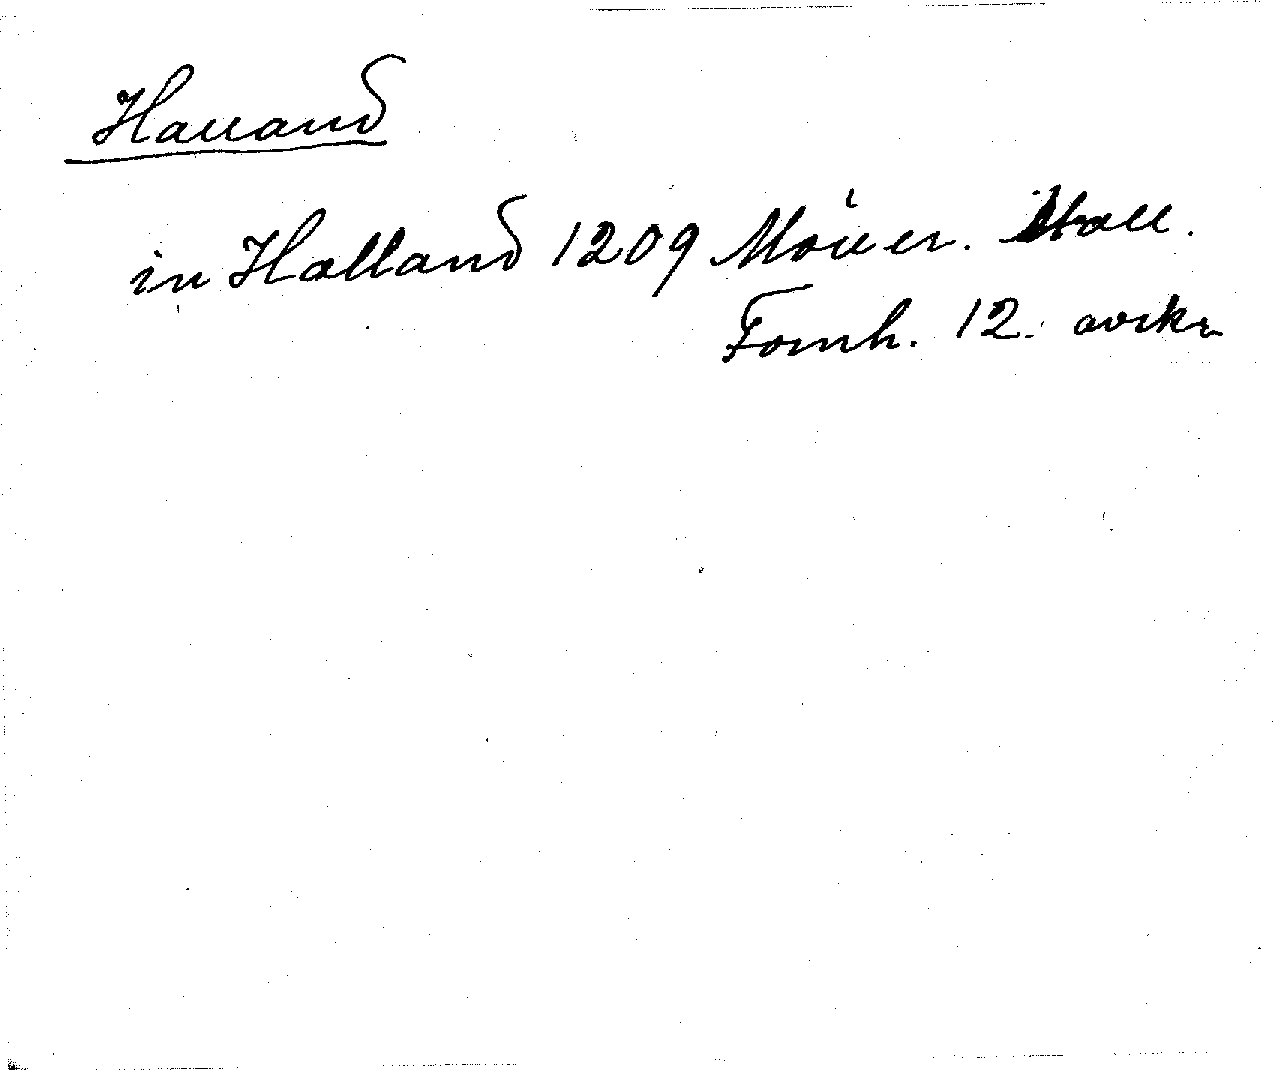 Halland
in Halland 1209 Möller. Hall.
Fornh. 12. avskr